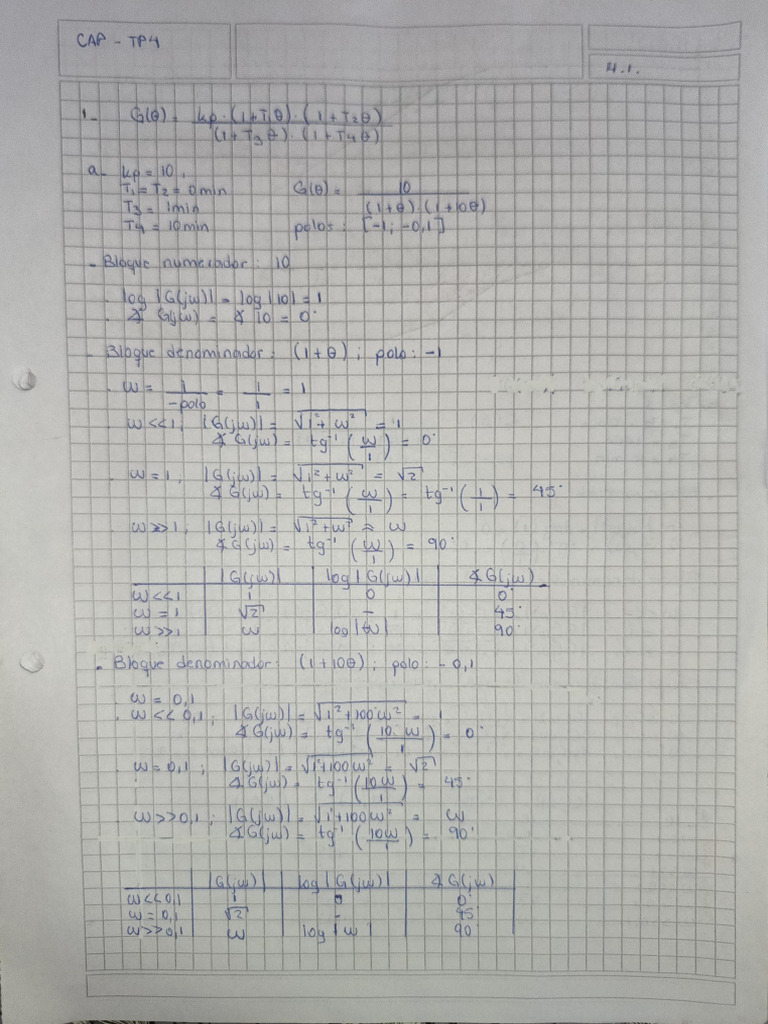 CAP - TP4
4.1.
1- G(θ) = kp · (1+T1θ) · (1+T2θ)
(1+T3θ) · (1+T4θ)
a- kp = 10,
T1 = T2 = 0min G(θ) = 10
T3 = 1min (1+θ) (1+10θ)
T4 = 10min polos: [-1; -0,1]
- Bloque numerador: 10
. log |G(jω)| = log |10| = 1
. ∡ G(jω) = ∡ 10 = 0°
- Bloque denominador: (1+θ); polo: -1
. ω = 1/-polo = 1/1 = 1
. ω<<1; |G(jω)| = √1²+ω² = 1
∡ G(jω) = tg⁻¹ (ω/1) = 0°
. ω=1; |G(jω)| = √1²+ω² = √2
∡ G(jω) = tg⁻¹ (ω/1) = tg⁻¹ (1/1) = 45°
. ω>>1; |G(jω)| = √1²+ω² ≈ ω
∡ G(jω) = tg⁻¹ (ω/1) = 90°
|G(jω)| log |G(jω)| ∡ G(jω)
ω<<1 1 0 0°
ω=1 √2 - 45°
ω>>1 ω log |ω| 90°
- Bloque denominador: (1+10θ); polo: -0,1
. ω = 0,1
. ω<<0,1; |G(jω)| = √1²+100ω² = 1
∡ G(jω) = tg⁻¹ (10·ω/1) = 0°
. ω=0,1; |G(jω)| = √1²+100ω² = √2
∡ G(jω) = tg⁻¹ (10ω/1) = 45°
. ω>>0,1; |G(jω)| = √1²+100ω² = ω
∡ G(jω) = tg⁻¹ (10ω/1) = 90°
|G(jω)| log |G(jω)| ∡ G(jω)
ω<<0,1 1 0 0°
ω=0,1 √2 - 45
ω>>0,1 ω log |ω| 90